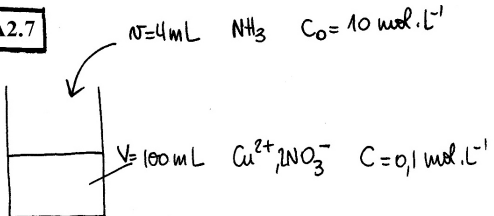 A2.7
v=4mL NH₃ C₀= 10 mol.L⁻¹
V=100mL Cu²⁺,2NO₃⁻ C=0,1 mol.L⁻¹